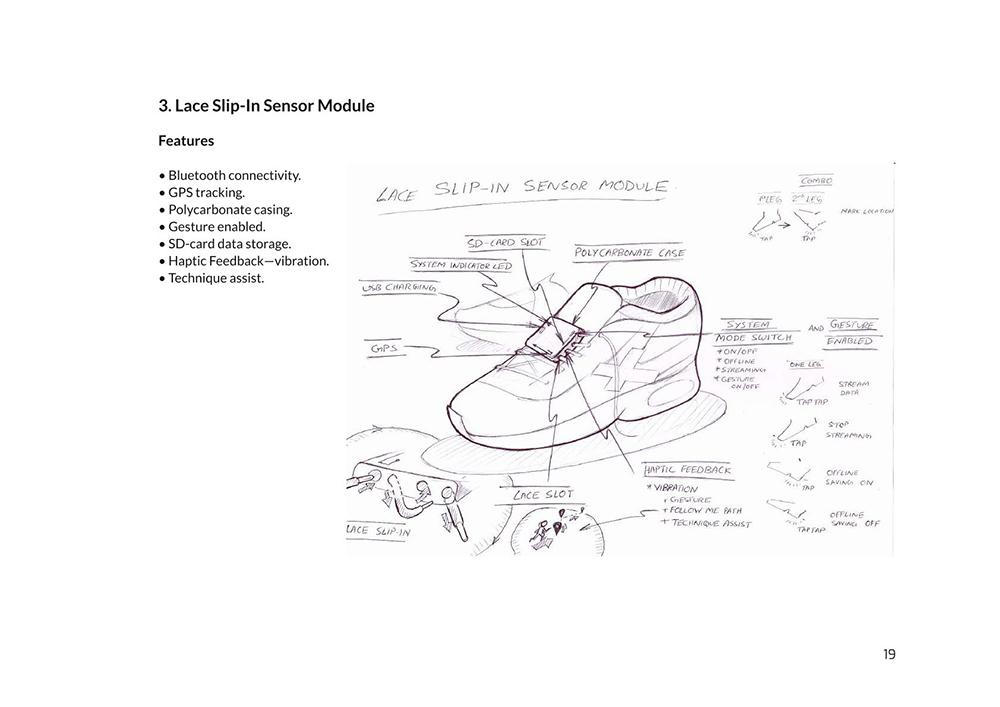 3. Lace Slip-In Sensor Module
Features
• Bluetooth connectivity.
• GPS tracking.
• Polycarbonate casing.
• Gesture enabled.
• SD-card data storage.
• Haptic Feedback—vibration.
• Technique assist.
LACE SLIP-IN SENSOR MODULE
COMBO
1ST LEG 2ND LEG
MARK LOCATION
TAP TAP
SD-CARD SLOT
POLYCARBONATE CASE
SYSTEM INDICATOR LED
USB CHARGING
GPS
SYSTEM AND GESTURE
MODE SWITCH ENABLED
* ON/OFF
* OFFLINE
* STREAMING
* GESTURE
ON/OFF
"ONE LEG"
STREAM
DATA
TAP TAP
STOP
STREAMING
TAP
OFFLINE
SAVING ON
TAP
OFFLINE
SAVING OFF
TAP TAP
HAPTIC FEEDBACK
* VIBRATION
+ GESTURE
+ FOLLOW ME PATH
+ TECHNIQUE ASSIST
LACE SLOT
LACE SLIP-IN
19